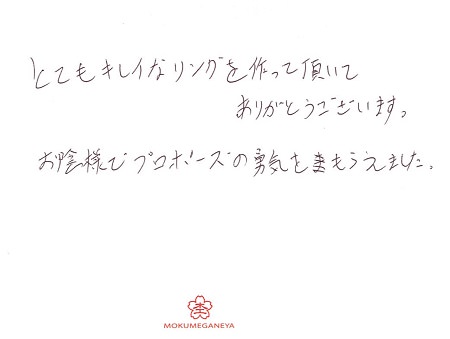 とてもキレイなリングを作って頂いて
ありがとうございます。
お陰様でプロポーズの勇気をもらえました。
杢
MOKUMEGANEYA